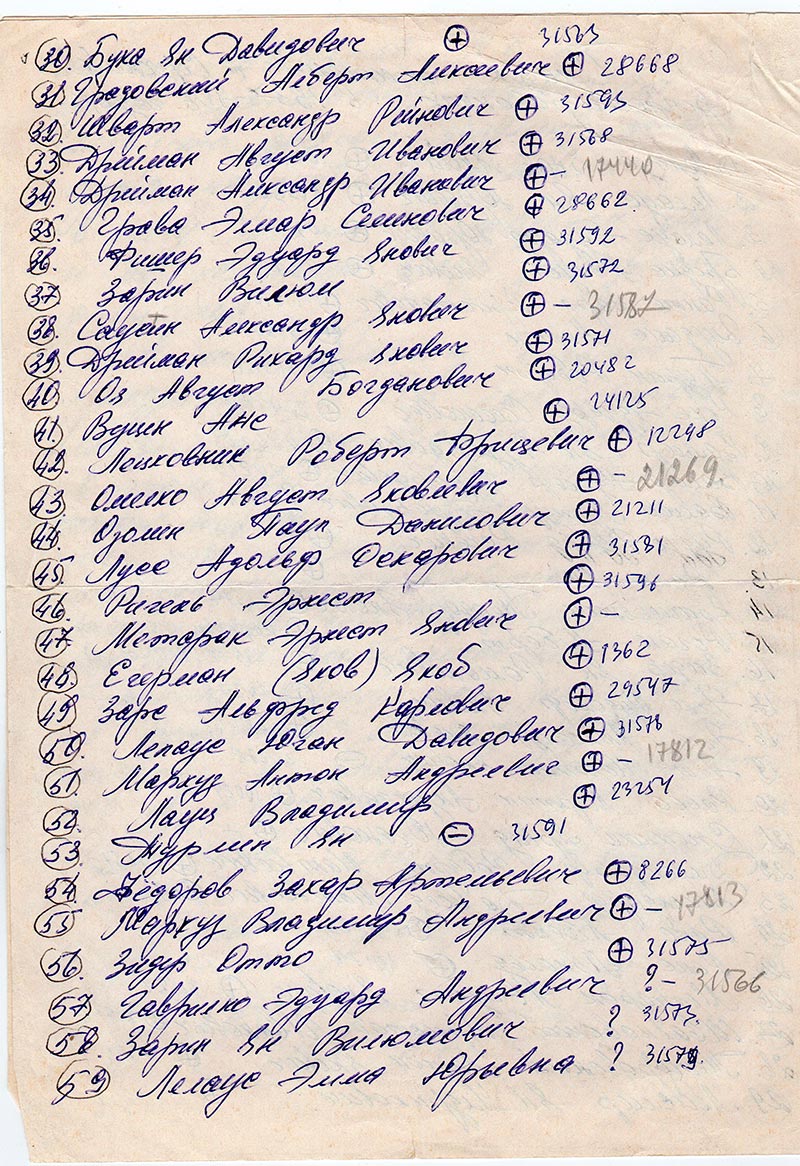 30. Бука Ян Давидович ⊕ 31563
31 Градовский Альберт Алексеевич ⊕ 28668
32. Шварт Александр Рейнович ⊕ 31593
33 Дрейман Август Иванович ⊕ 31568
34. Дрейман Александр Иванович ⊕ – 17440.
35. Грава Элмар Семенович ⊕ 28662.
36. Фишер Эдуард Янович ⊕ 31592
37 Зарин Вилюм ⊕ 31572
38. Саутин Александр Янович ⊕ – 31587
39. Дрейман Рихард Янович ⊕ 31571
40. Оя Август Богданович ⊕ 20482
41. Вушн Анс ⊕ 24125
42. Лешковник Роберт Фрицевич ⊕ 12298
43 Омелко Август Яковлевич ⊕ – 21269.
44. Озолин Паул Данилович ⊕ 21211
45. Лусе Адольф Оскарович ⊕ 31581
46. Ригень Эрнест ⊕ 31596
47. Метарак Эрнест Янович ⊕ –
48. Егерман (Яков) Якоб ⊕ 1362
49 Зарс Альфред Карлович ⊕ 29547
50. Лепаус Юган Давидович ⊕ 31578
51. Маркуз Антон Андреевич ⊕ – 17812
52. Лауц Владимир ⊕ 23254
53. Турлин Ян ⊖ 31591
54. Фёдоров Захар Артемьевич ⊕ 8266
55. Маркуз Владимир Андреевич ⊕ – 17813
56. Зидер Отто ⊕ 31575
57 Гаврилко Эдуард Андреевич ? – 31566
58. Зарин Ян Вилюмович ? 31573.
59 Лепаус Эмма Юрьевна ? 31579.